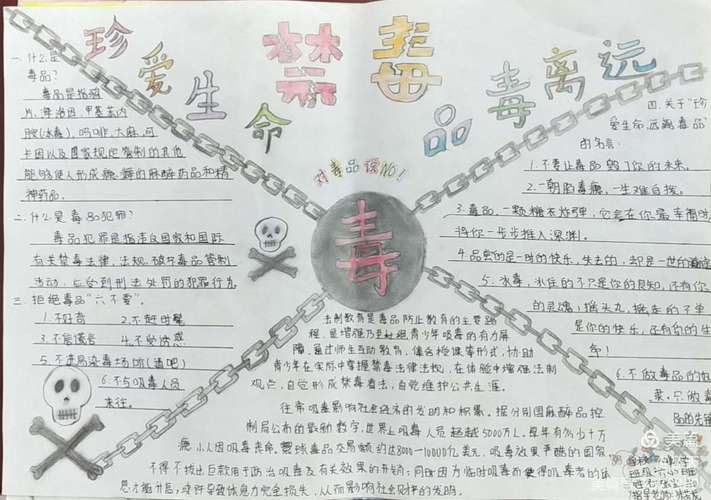 珍爱生命
禁毒
远离毒品
对毒品说NO!
毒
一.什么是
毒品?
毒品是指鸦
片、海洛因、甲基苯丙
胺(冰毒)、吗啡、大麻、可
卡因以及国家规定管制的其他
能够使人形成瘾癖的麻醉药品和精
神药品。
二.什么是毒品犯罪?
毒品犯罪是指违反国家和国际
有关禁毒法律、法规,破坏毒品管制
活动,应受到刑法处罚的犯罪行为。
三.拒绝毒品"六不要"。
1.不好奇 2.不赶时髦
3.不能逞
4.不受诱惑
5.不进易染毒场所(酒吧)
6.不与吸毒人员
来往。
四.关于"珍
爱生命,远离毒品"
的名言:
1.不要让毒品毁了你的未来。
2.一朝的毒瘾,一生难自拔。
3.毒品,一颗糖衣炸弹,它会在你最幸福时
将你一步步推入深渊。
的是一时的快乐,失去的,却是一世的
5.冰毒,冰住的不只是你的良知,还有你
的灵魂;摇头丸,摇走的不单
是你的快乐,还有你的生
命!
6.不做毒品的
法制教育是毒品防止教育的主要路
程,是增强乃至杜绝青少年吸毒的有力屏
障,通过师生互动教育,集合检课等形式,协助
青少年在实际中掌握禁毒法律法规,在体验中增强法制
观点,自觉形成禁毒看法,自觉维护公共生涯。
往常吸毒影响社会经济的发明和积累,据分别国麻醉品控
制局公布的最新数字,世界上吸毒人员超越5000万人。每年有多少十万
瘾小人因吸毒丧命。寰球毒品交易额约达8000—10000亿美元,吸毒效果严酷的国家
不得不拨出巨款用于防治吸毒及有关效果的开销,同时因为临时吸毒而使得吸毒者的
思才能升后,或许导致休息力完全损失,从而影响社会财产的发明。
美篇